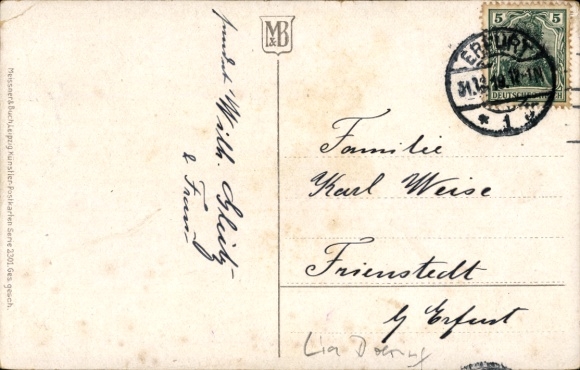 Meissner & Buch, Leipzig Künstler-Postkarten Serie 2301 Ges. gesch.
M&B
sendet Wilh.
& Frau
5 5
DEUTSCHES REICH
ERFURT
* 1
Familie
Karl Weise
Frienstedt
b/ Erfurt
Lia Doering